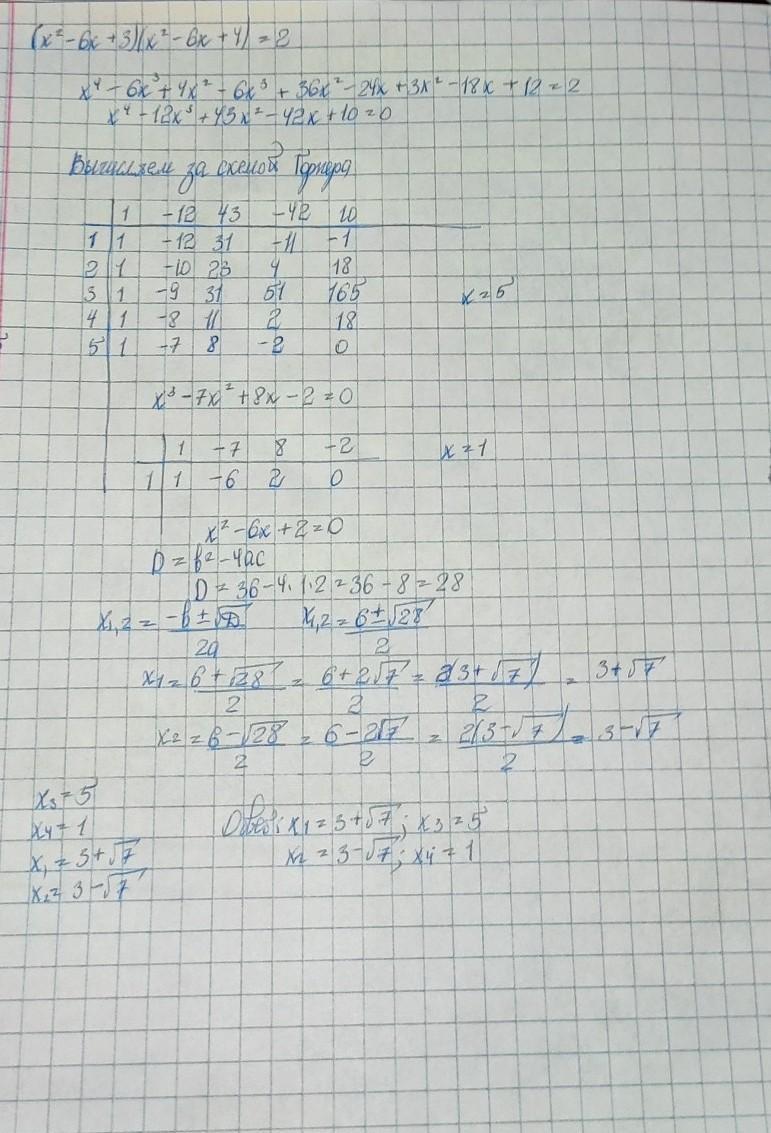 (x²-6x+3)(x²-6x+4)=2
x⁴-6x³+4x²-6x³+36x²-24x+3x²-18x+12=2
x⁴-12x³+43x²-42x+10=0
Вычисляем за схемой Горнера
1 -12 43 -42 10
1 1 -12 31 -11 -1
2 1 -10 23 4 18
3 1 -9 31 51 165 x=5
4 1 -8 11 2 18
5 1 -7 8 -2 0
x³-7x²+8x-2=0
1 -7 8 -2 x=1
1 1 -6 2 0
x²-6x+2=0
D=b²-4ac
D=36-4·1·2=36-8=28
x₁,₂=(-b±√D)/2a x₁,₂=(6±√28)/2
x₁=(6+√28)/2=(6+2√7)/2=2(3+√7)/2=3+√7
x₂=(6-√28)/2=(6-2√7)/2=2(3-√7)/2=3-√7
x₃=5
x₄=1 Ответ: x₁=3+√7; x₃=5
x₁=3+√7 x₂=3-√7; x₄=1
x₂=3-√7